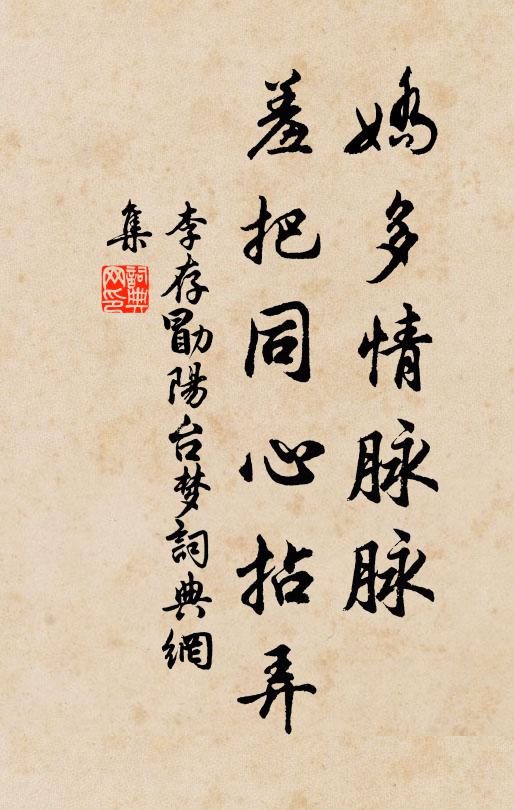 嬌多情脉脉
羞把同心拈弄
李存勖陽台梦詞典網
集
詞典
网印